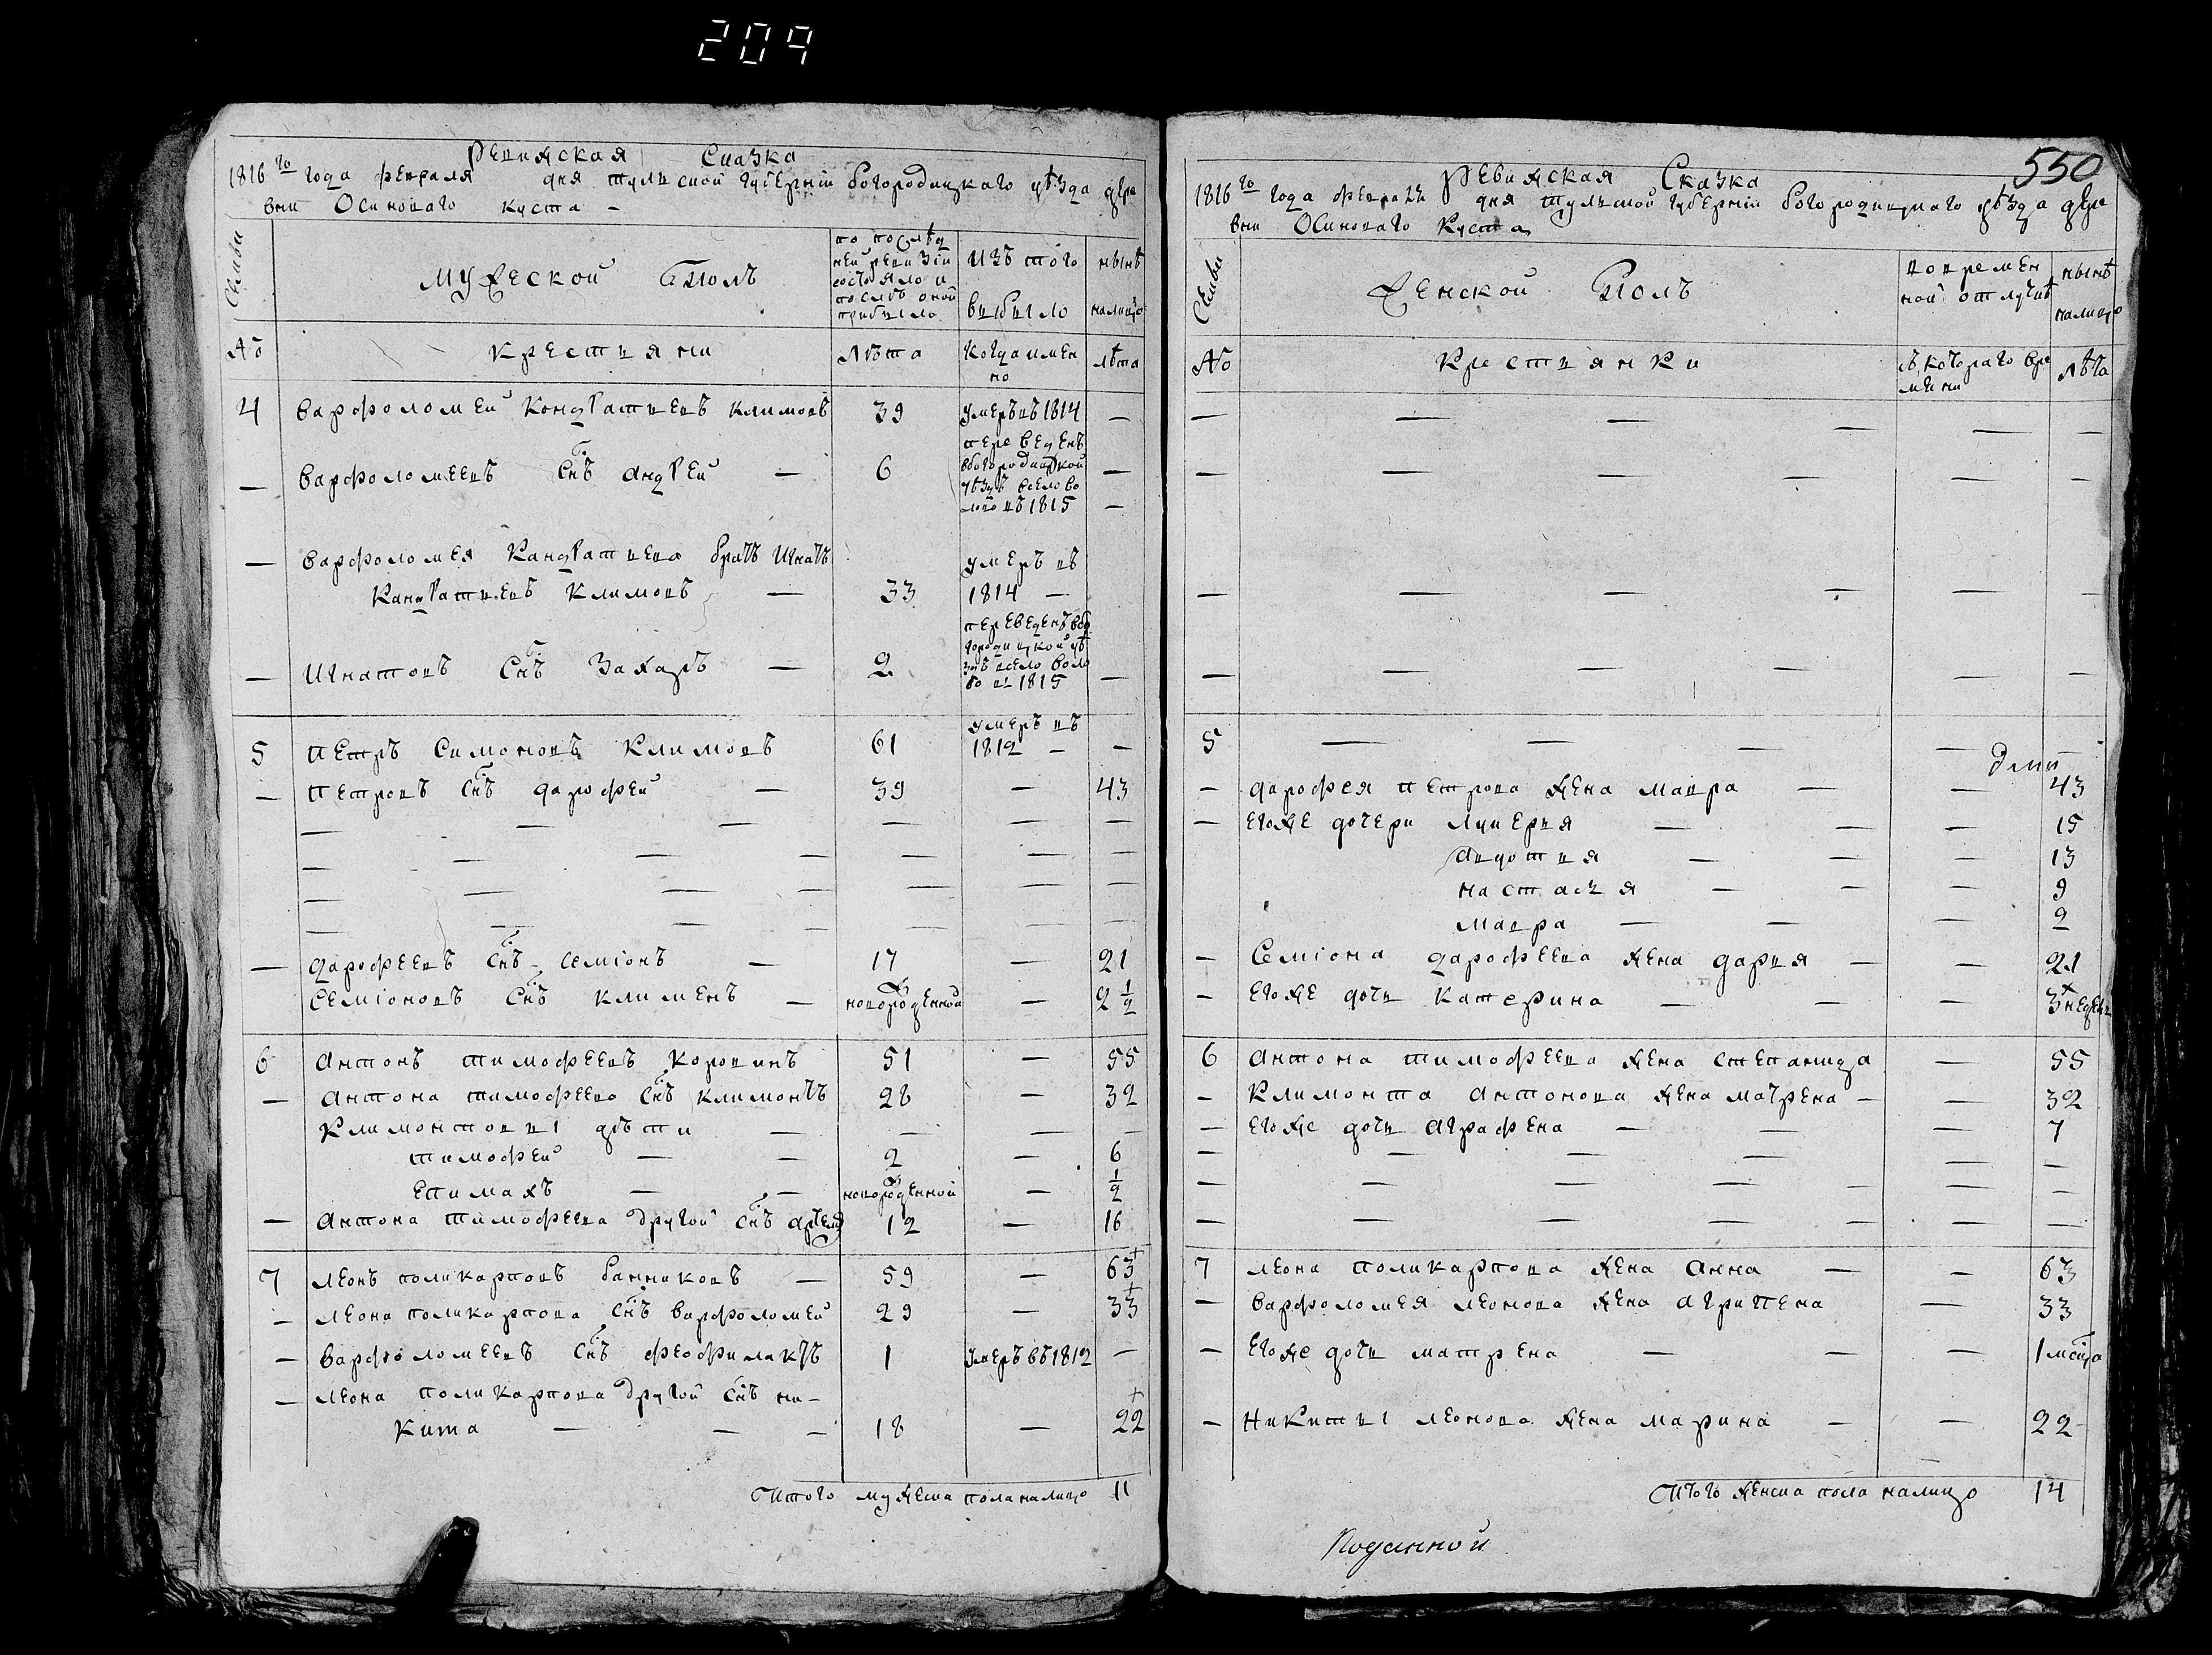 209
Ревижская Сказка
1816 го года февраля дня тульской губернiи богородицкаго уѣзда дере
вни Осиноваго куста –
Семьи
мужеской Полъ
по послѣд
ней ревизiи
состояло и
послѣ оной
прибыло
изъ того
выбыло
нынѣ
налицо
№
крестьяни
лѣта
когда имен
но
лѣта
4 варфоломей Кондратьевъ климовъ 39 умеръ въ 1814 —
— варфоломеевъ Снъ андрей — 6 переведенъ
вбогородицкой
уѣздъ вსело во
лово въ 1815 —
— варфоломея Кандратьева братъ Игнатъ
Кандратьевъ климовъ — 33 умеръ въ
1814 —
— Игнатовъ Снъ Захаръ — 2 переведенъ вбо
городицкой уѣ
здъ всело воло
во въ 1815 —
5 Петръ Симоновъ Климовъ 61 умеръ въ
1812 — —
— Петровъ Снъ дарофей — 39 — 43
— дарофеевъ Снъ семiонъ — 17 — 21
семiоновъ Снъ климентъ — новорожденной — 2 1/2
6 Антонъ тимофеевъ коровинъ 51 — 55
— Антона тимофеева Снъ климонтъ 28 — 32
климонтовы дѣти — — — —
тимофей — — 2 — 6
Епимахъ — — новорожденной — 1/2
— Антона тимофеева другой Снъ 12 — 16
7 леонъ поликарповъ банниковъ — 59 — 63
— леона поликарпова Снъ варфоломей 29 — 33
— варфоломеевъ Снъ феофилактъ 1 умеръ въ 1812 —
— леона поликарпова другой Снъ ни–
кита — — — 18 — 22
Итого мужеска пола налицо 11
550
Ревижская Сказка
1816 го года февраля дня тульской губернiи богородицкаго уѣзда дере
вни Осиноваго Куста
Семьи
Женской Полъ
вовремен
ной отлучкѣ
нынѣ
налицо
№
Крестьянки
съ котораго вре
мени
лѣта
5 — — — — —
— дарофея петрова жена мавра — — 43
— егоже дочери лукерья — — — 15
авдотья — — — 13
настасья — — — 9
мавра — — — 2
— Семiона дарофеева жена дарья — — 21
— егоже дочь катерина — — — 3 недели
6 антона тимофеева жена степанида — 55
— климонта антонова жена матрена — — 32
— егоже дочь аграфена — — — 7
7 леона поликарпова жена анна — — 63
— варфоломея леонова жена агрипена — 33
— егоже дочь матрена — — — 1 мсца
— никиты леонова жена марина — — 22
Итого женска пола налицо 14
Поданной